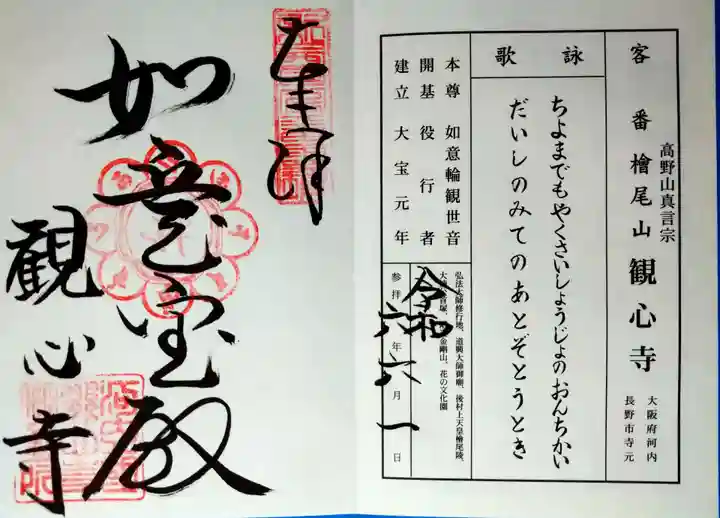 客番
高野山真言宗
檜尾山 観心寺
大阪府河内
長野市寺元
詠歌
ちよまでもやくさいしょうじょのおんちかい
だいしのみてのあとぞとうとき
本尊 如意輪観世音
開基 役行者
建立 大宝元年
弘法大師修行地、道興大師御廟、後村上天皇檜尾陵、
金剛山、花の文化園
参拝 令和六年六月一日
奉拝
如意宝殿
観心寺